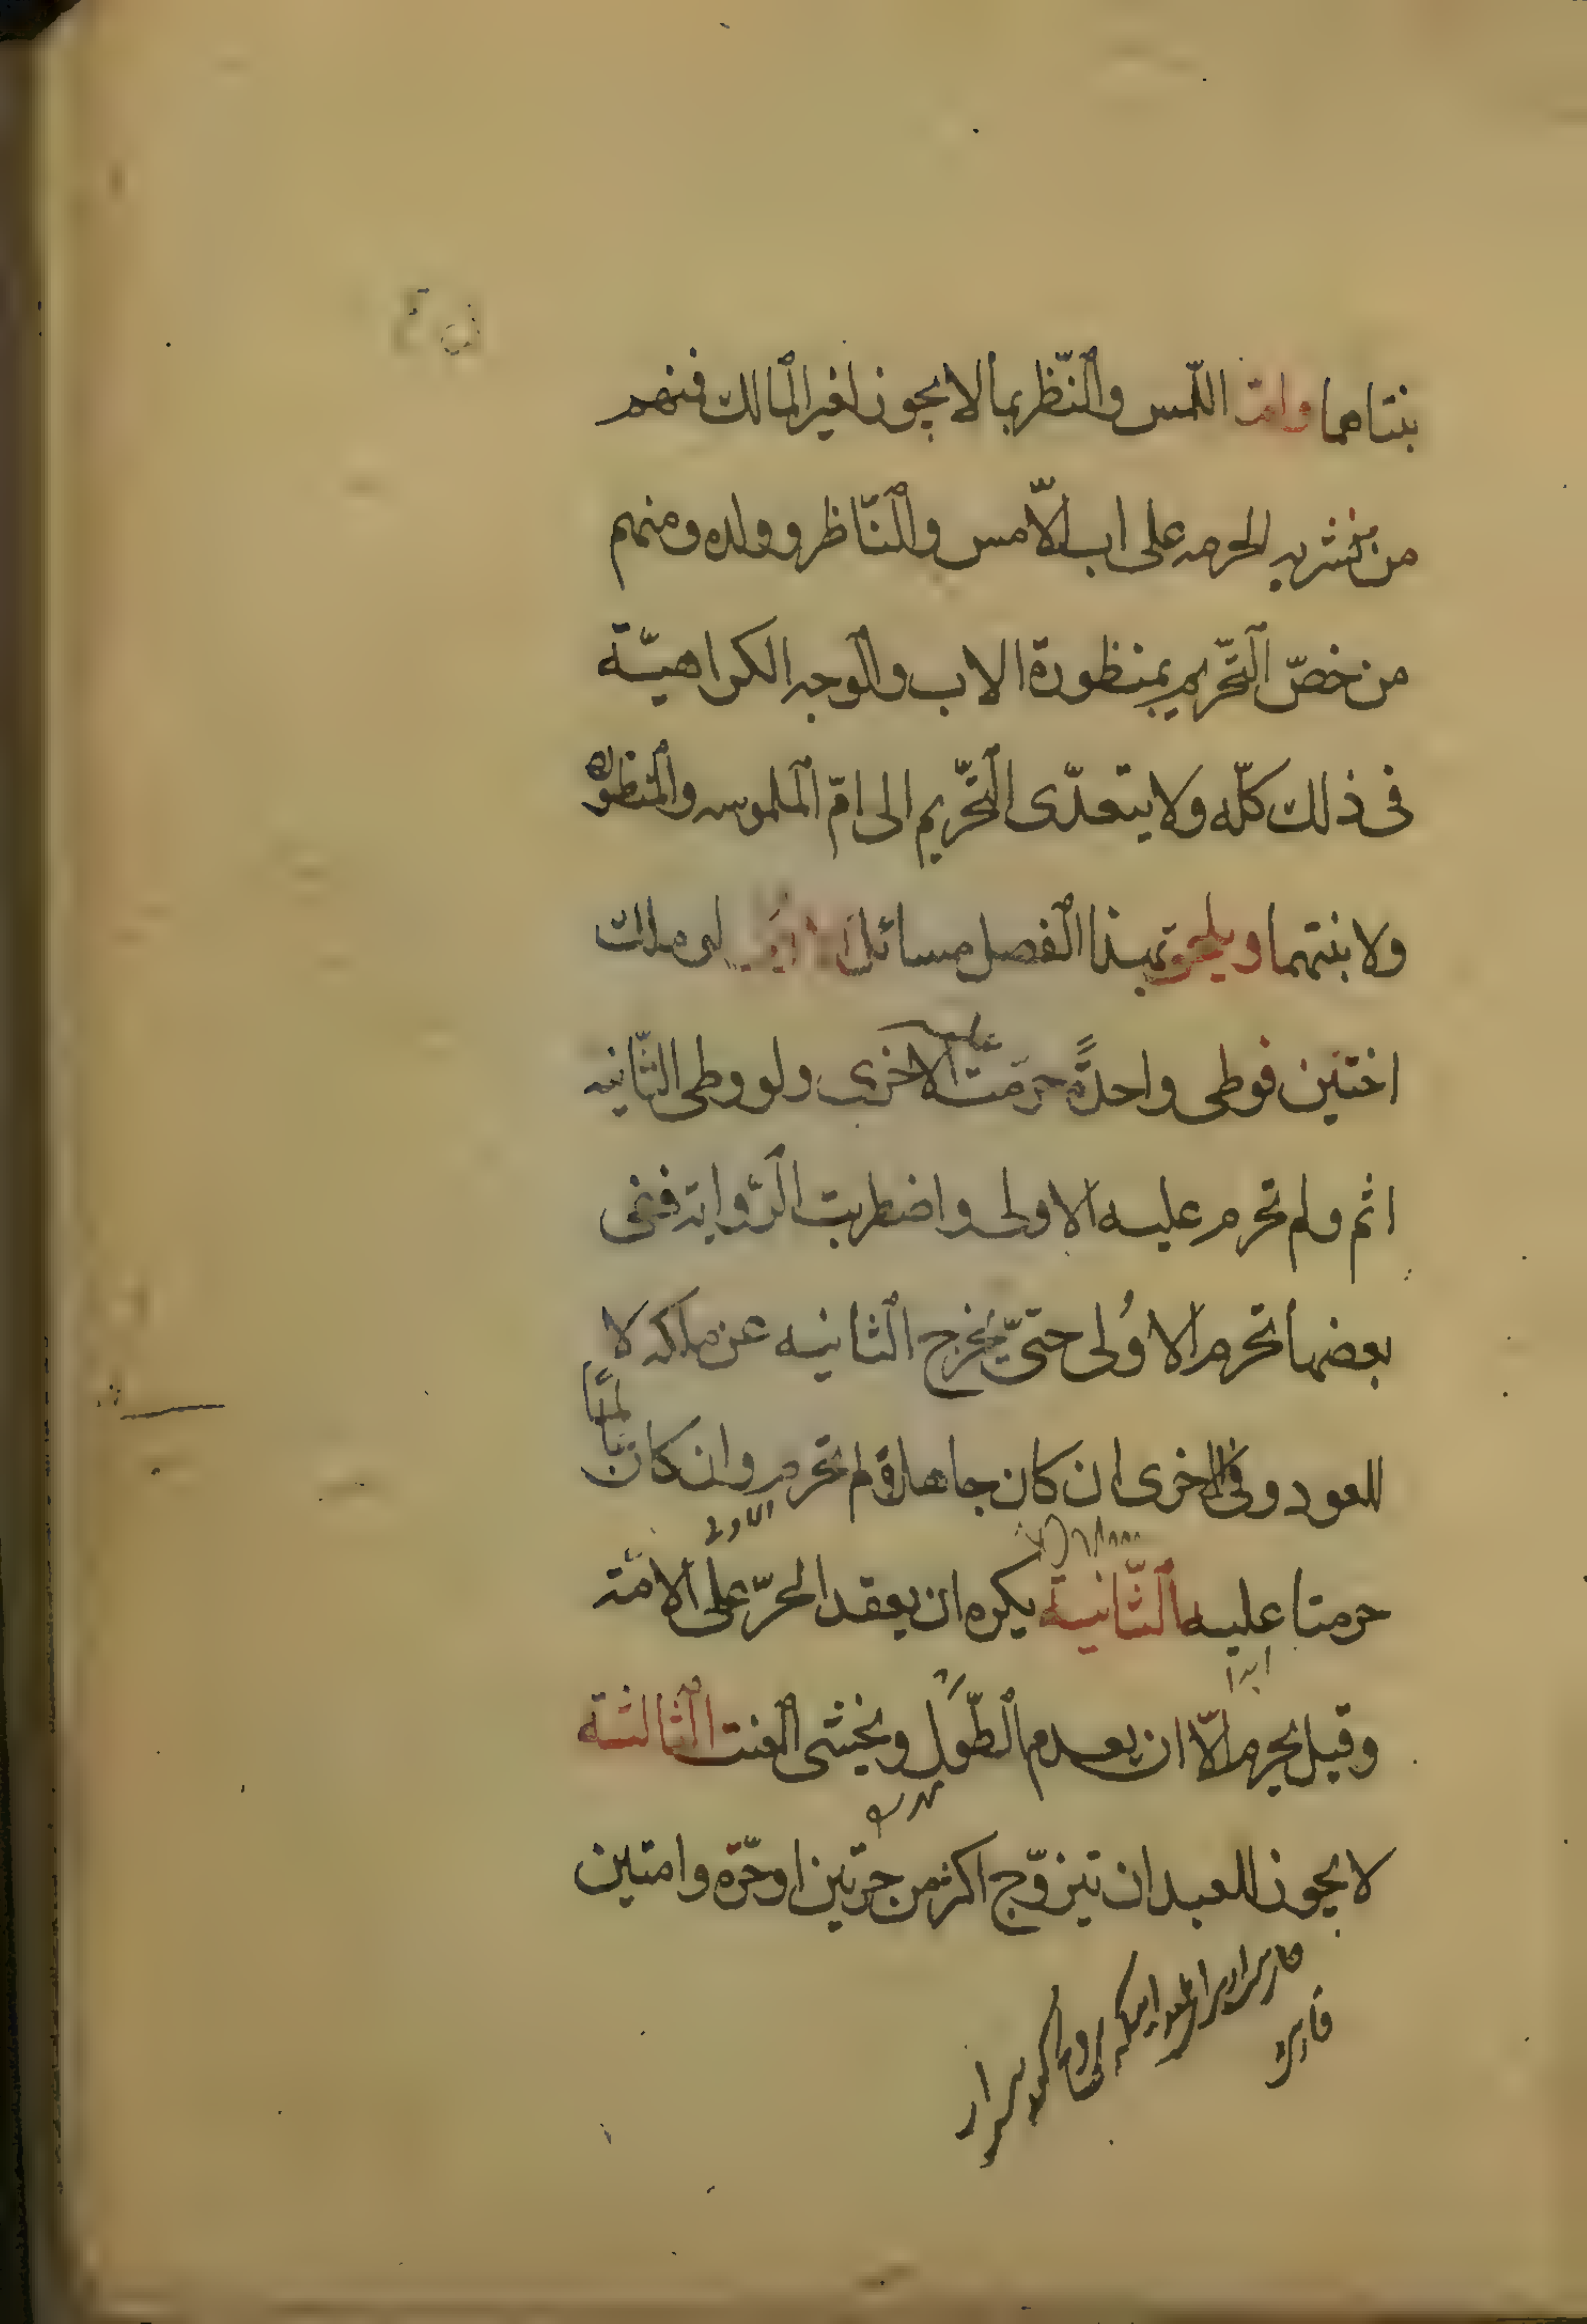 بنتاهما وامّا اللّمس والنّظر بما لا يجوز لغير المالك فمنهم
من ينشر به الحرمه على اب اللّامس والنّاظر وولده ومنهم
من خصّ التّحريم بمنظورة الاب والوجه الكراهيّة
فى ذلك كلّه ولا يتعدّى التّحريم الى امّ الملموسه والمنظوره
ولا بنتهما ويلحق بهذا الفصل مسائل لو ملك
اختين فوطى واحدةً حرمت الاخرى ولو وطى الثّانيه
اثم ولم تحرم عليه الاولى واضطربت الرّواية ففى
بعضها تحرم الاُولى حتىّ يخرج الثانيه عن ملكه لا
للعود وفى الاخرى ان كان جاهلا لم تحرم وان كان عالمًا
الاولى
حرمتا عليه الثّانية يكره ان يعقد الحرّ على الامة
ابدا
وقيل يحرم الّا ان يعدم الطّول ويخشى العنت الثالثة
لا يجوز للعبد ان يتزوّج اكثر من حرّتين او حرّه وامتين